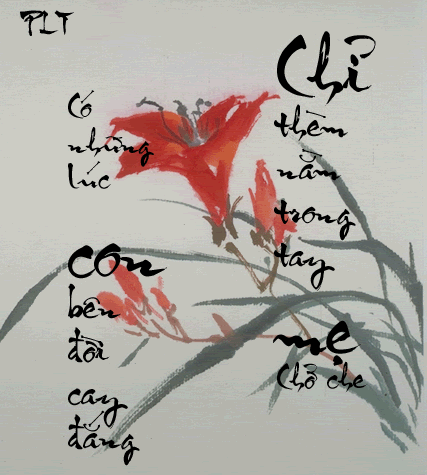 PLT
Có
những
lúc
con
bên
đời
cay
đắng
Chỉ
thèm
nằm
trong
tay
mẹ
Chở che